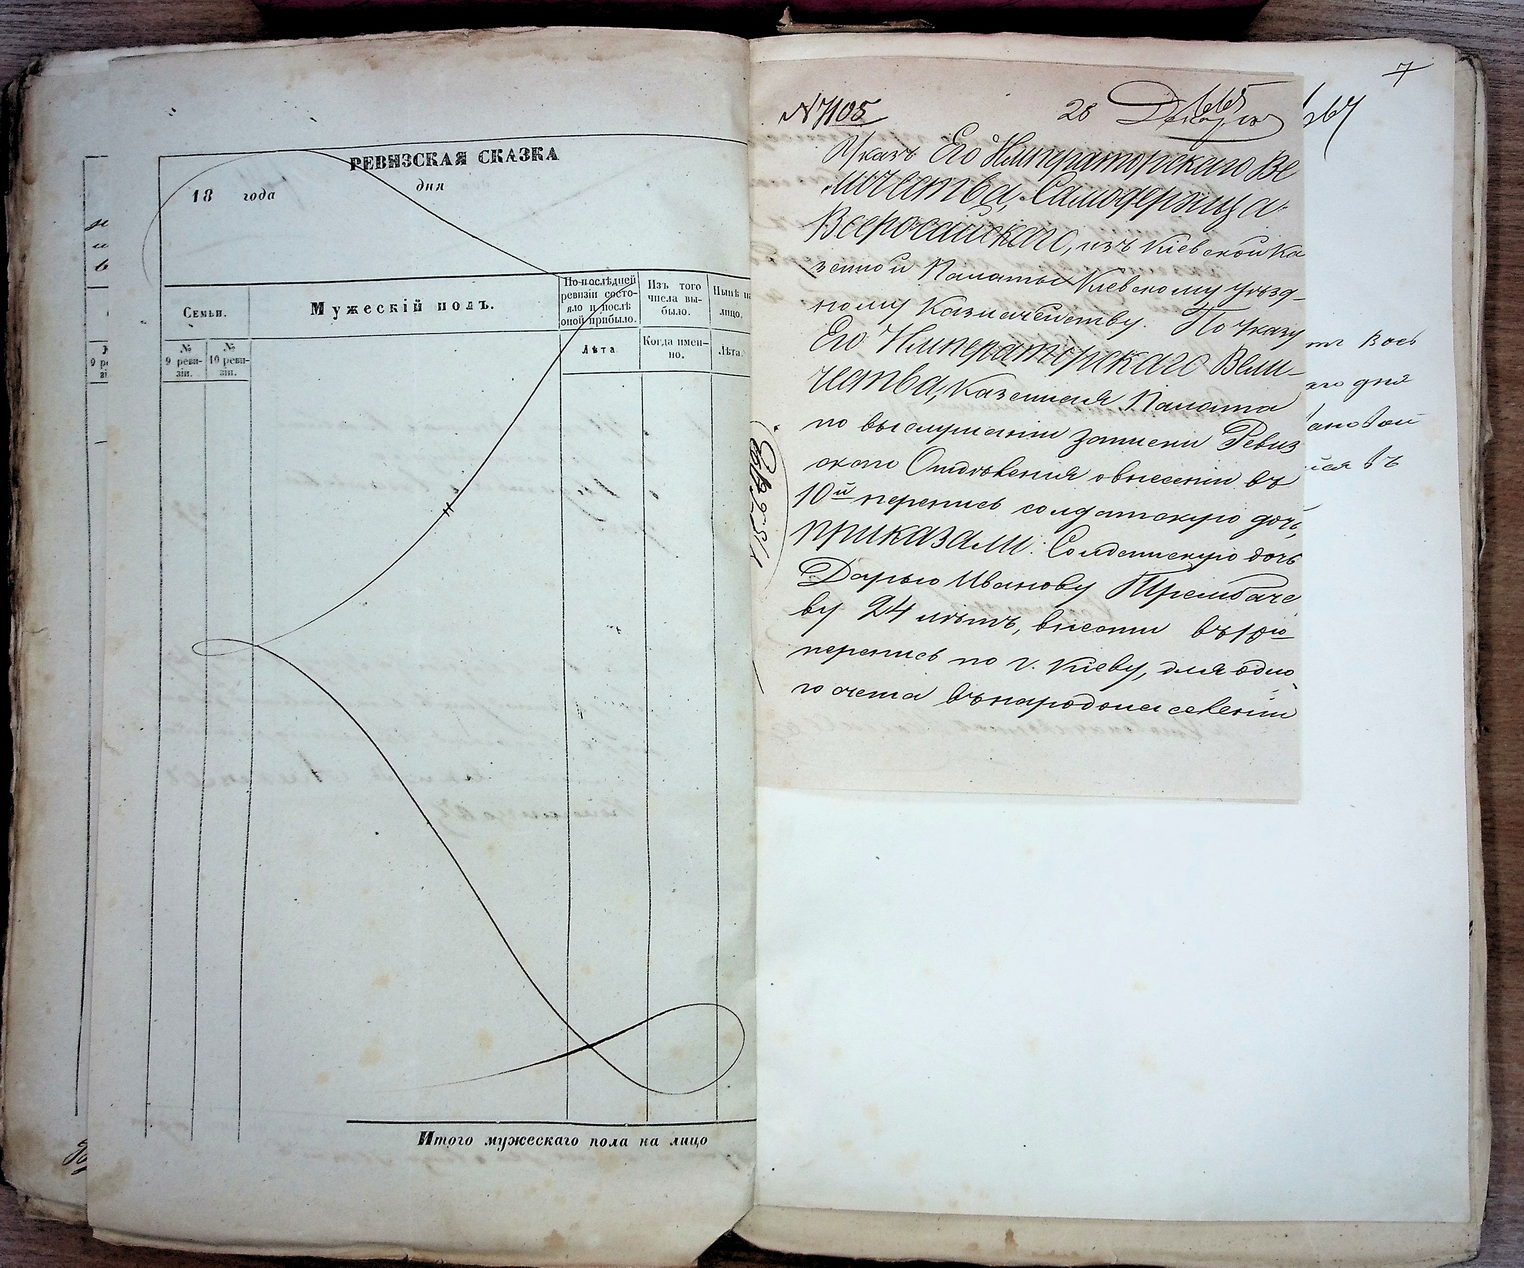 РЕВИЗСКАЯ СКАЗКА
18 года дня
Семьи.
№ 9 реви-зіи.
№ 10 реви-зіи.
Мужескій полъ.
По послѣдней
ревизіи состо-
яло и послѣ
оной прибыло.
Лѣта
Изъ того
числа вы-
было.
Когда имен-
но.
Нынѣ на
лицо.
Лѣта.
Итого мужескаго пола на лицо
7
№ 7105
28
Указъ Его Императорскаго Ве
личества, Самодержца
Всероссійскаго, изъ Кіевской Ка
зенной Палаты Кіевскому уѣзд-
ному Казначейству. По указу
Его Императорскаго Вели-
чества, Казенная Палата
по выслушаніи записки Ревиз
скаго Отдѣленія о внесеніи въ
10й перепись солдатскую дочь,
приказали: Солдатскую дочь
Дарью Иванову Трембаче
ву 24 лѣтъ, внести въ 10ю
перепись по г. Кіеву, для одно
го счета въ народонаселеніи
Вось
аго дня
ановой
въ